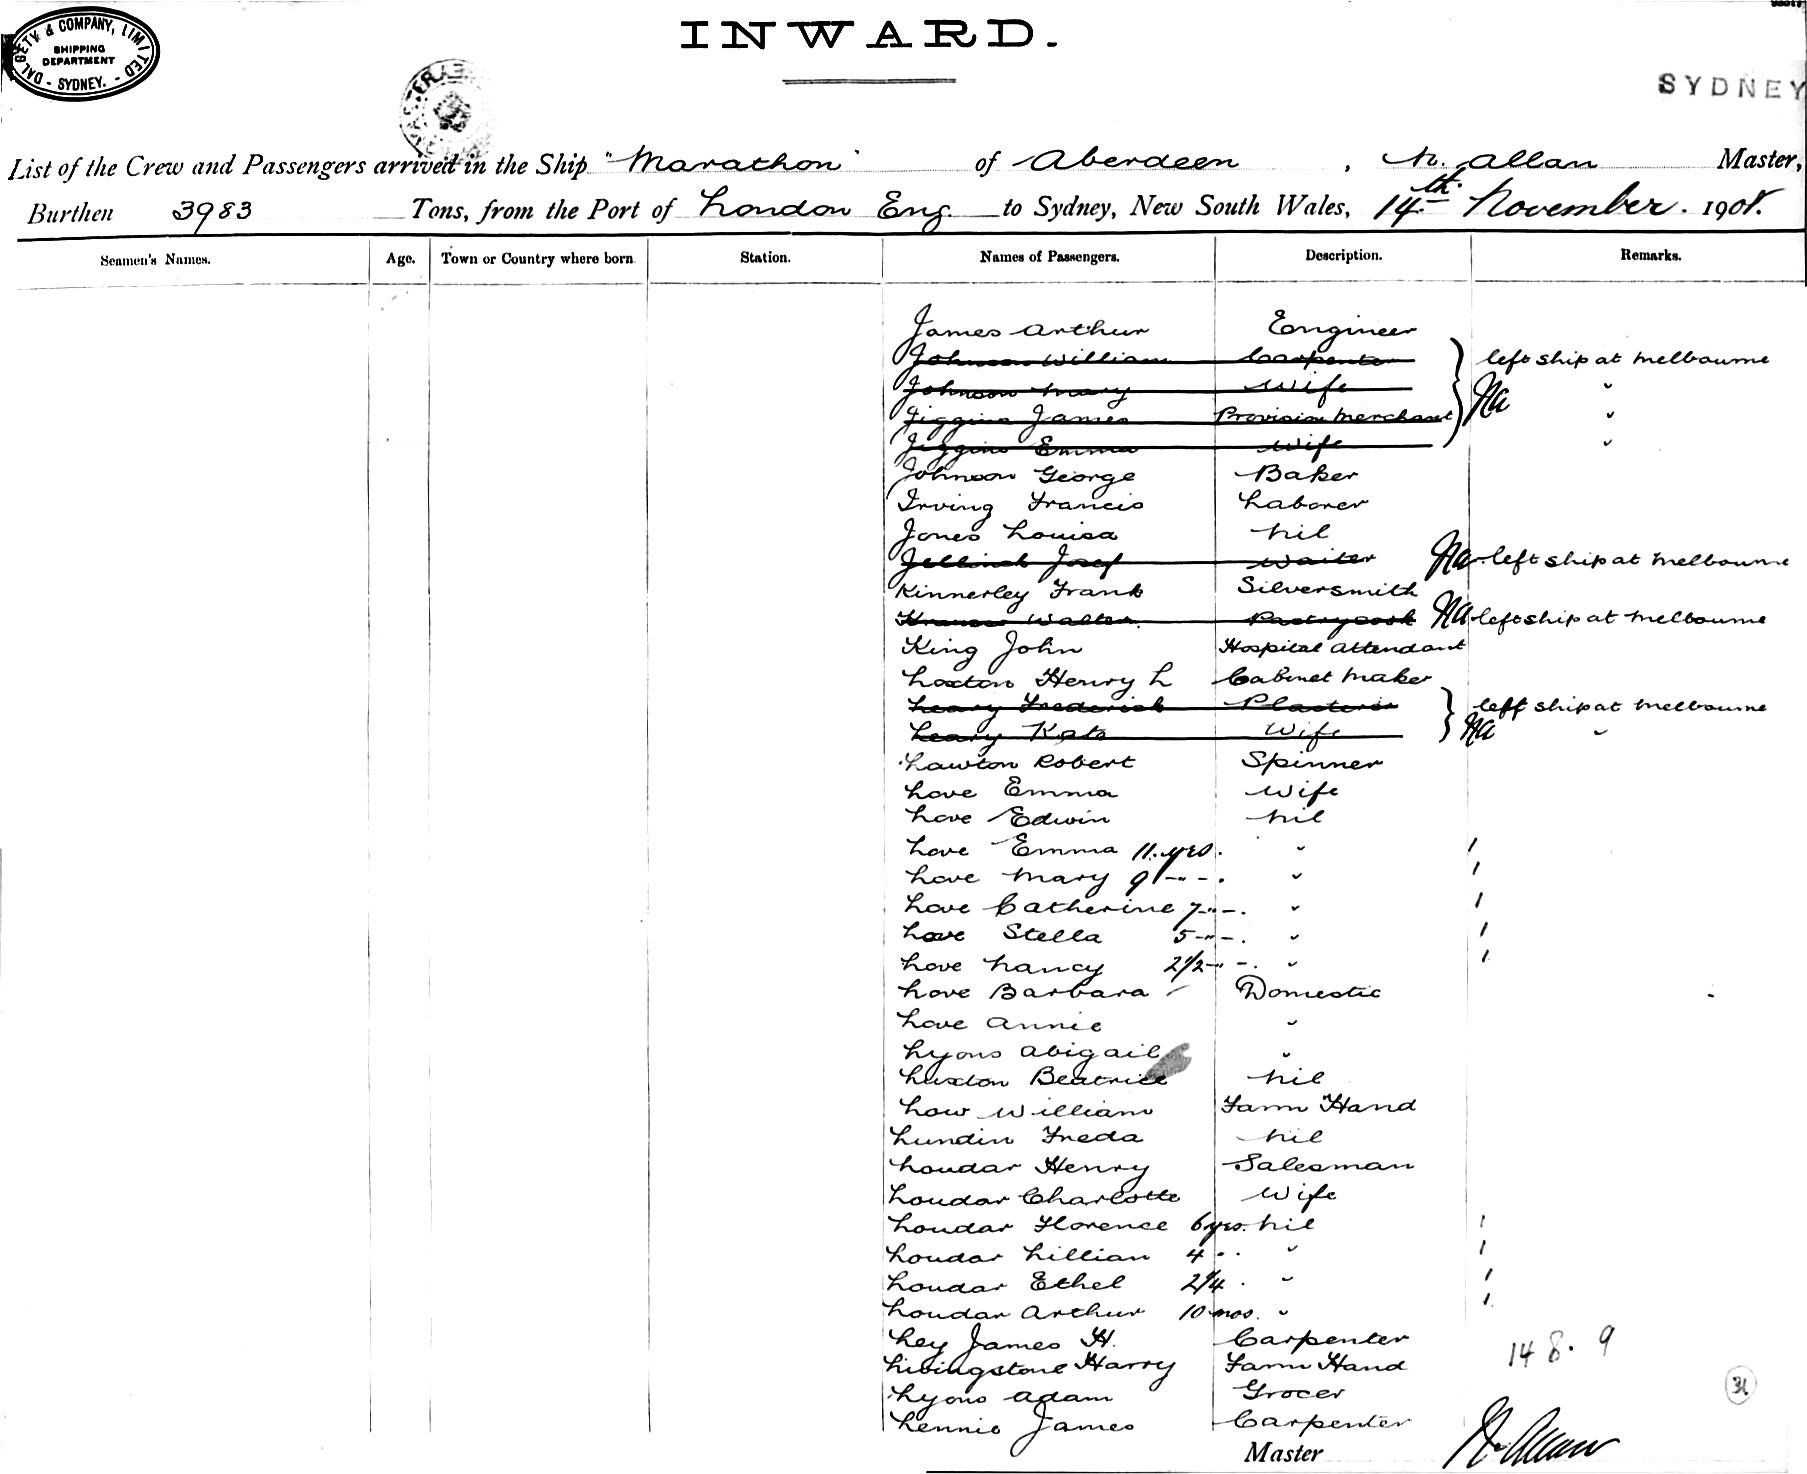 DALGETY & COMPANY, LIMITED
SHIPPING
DEPARTMENT
- SYDNEY. -
INWARD.
SYDNEY
List of the Crew and Passengers arrived in the Ship "Marathon" of Aberdeen, N. Allan Master,
Burthen 3983 Tons, from the Port of London Eng. to Sydney, New South Wales, 14th November. 1908.
Seamen's Names. Age. Town or Country where born Station. Names of Passengers. Description. Remarks.
James Arthur Engineer
Johnson William Carpenter left ship at Melbourne
Johnson Mary Wife "
Jiggins James Provision Merchant Na "
Jiggins Emma Wife "
Johnson George Baker
Irving Francis Laborer
Jones Louisa Nil
Jellinek Josef Waiter Na left ship at Melbourne
Kinnerley Frank Silversmith
Walter Pastrycook Na left ship at Melbourne
King John Hospital Attendant
Loxton Henry L Cabinet Maker
Leary Frederick Plasterer left ship at Melbourne
Leary Kate Wife Na "
Lawton Robert Spinner
Love Emma Wife
Love Edwin Nil
Love Emma 11. yrs. "
Love Mary 9 -"-. "
Love Catherine 7 -"-. "
Love Stella 5 -"-. "
Love Nancy 2 1/2 -"-. "
Love Barbara Domestic
Love Annie "
Lyons Abigail "
Luxton Beatrice Nil
Low William Farm Hand
Lundin Freda Nil
Loudar Henry Salesman
Loudar Charlotte Wife
Loudar Florence 6 yrs. Nil
Loudar Lillian 4 " "
Loudar Ethel 2 1/4 " "
Loudar Arthur 10 mos. "
Ley James H. Carpenter
Livingstone Harry Farm Hand
Lyons Adam Grocer
Lennie James Carpenter
14 8. 9
31
Master N. Allan